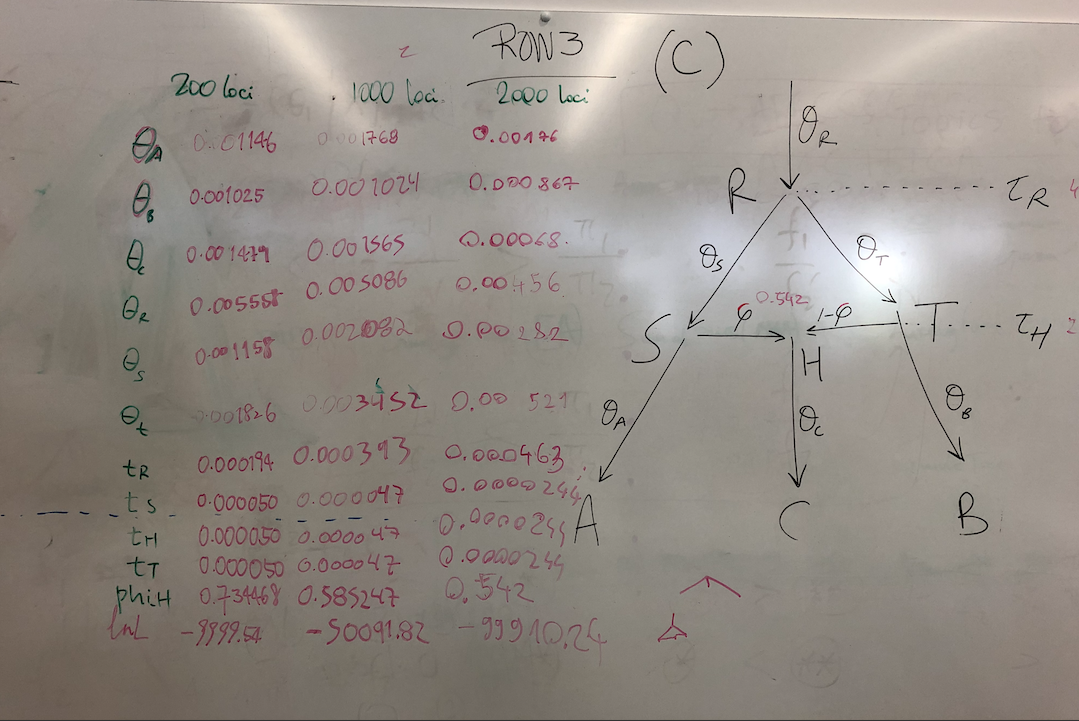 ROW 3
(C)
200 loci 1000 loci. 2000 loci
θA 0.01146 0.001768 0.00176
θB 0.001025 0.001024 0.000867
θc 0.001479 0.001565 0.00068.
θR 0.005555 0.005086 0.00456
θS 0.001158 0.002082 0.00282
θt 0.001826 0.521
tR 0.000194 0.000393 0.000463
tS 0.000050 0.000047 0.0000244
tH 0.000050 0.000047 0.0000244
tT 0.000050 0.000047 0.0000244
phiH 0.734468 0.585247 0.542
lnL -9999.54 -50091.82 -99910.24
θR
R τR
θS θT
φ 0.542 1-φ
S H T τH
θA θC θB
A C B